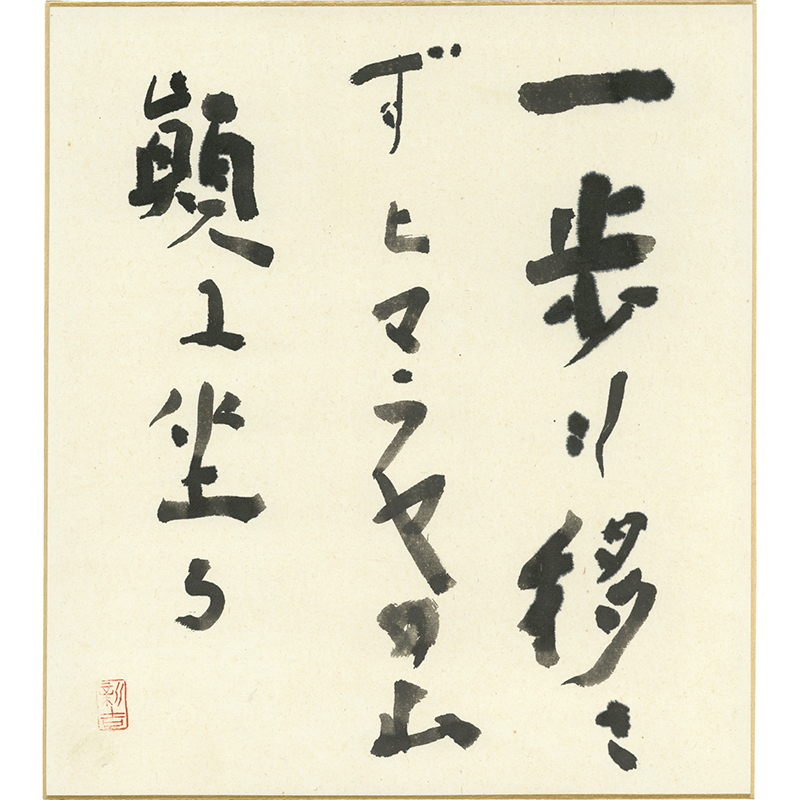 一歩も移さ
ずヒマラヤの山
巓に坐る